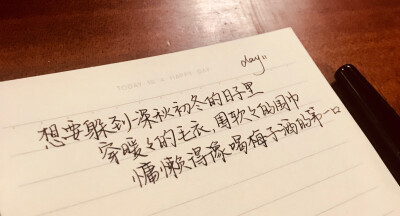 day11
TODAY IS A HAPPY DAY
想要躲到深秋初冬的日子里
穿暖々的毛衣,围软々的围巾
慵懒得像喝梅子酒的第一口